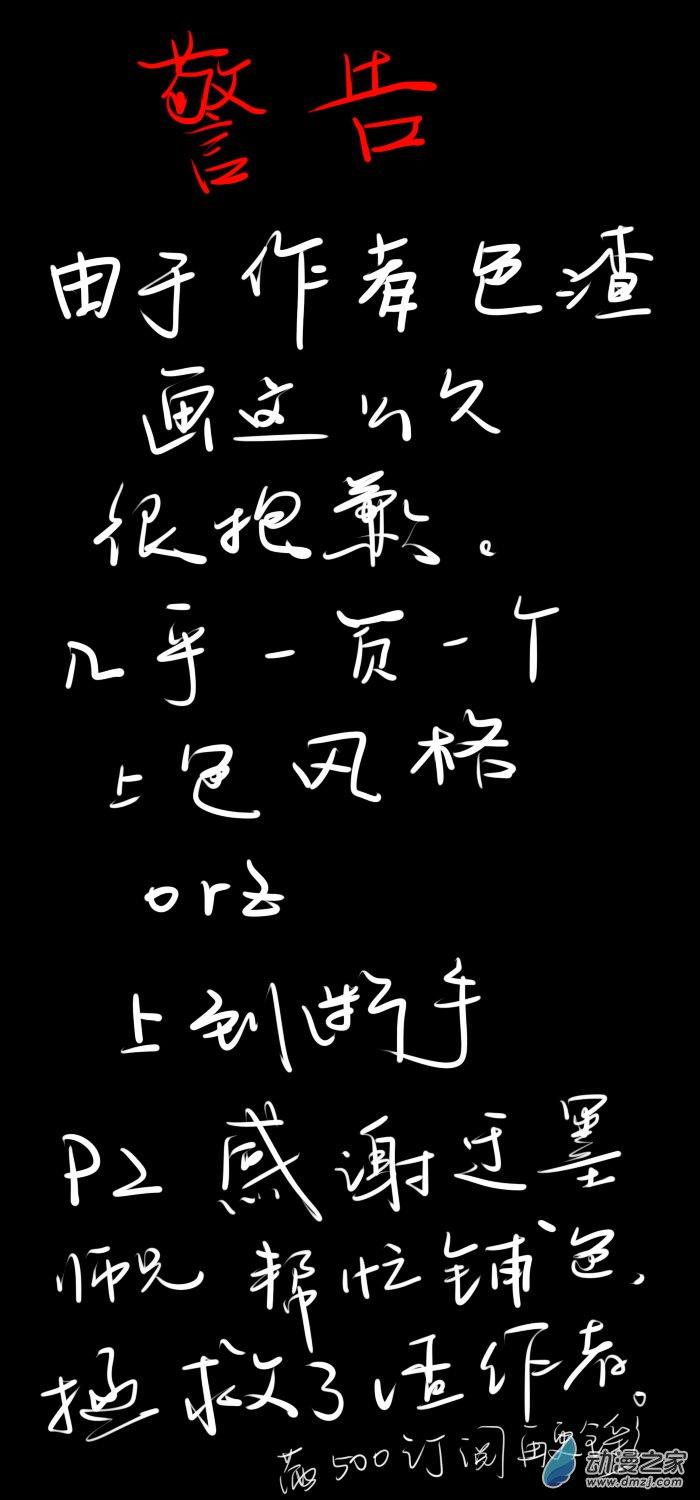 警告
由于作者色渣
画这么久
很抱歉。
几乎一页一个
上色风格
orz
上到断手
P2感谢迁墨
师兄帮忙铺色,
拯救了渣作者。
满500订阅再更
动漫之家
www.dmzj.com